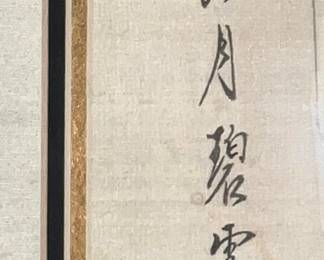 月碧雲